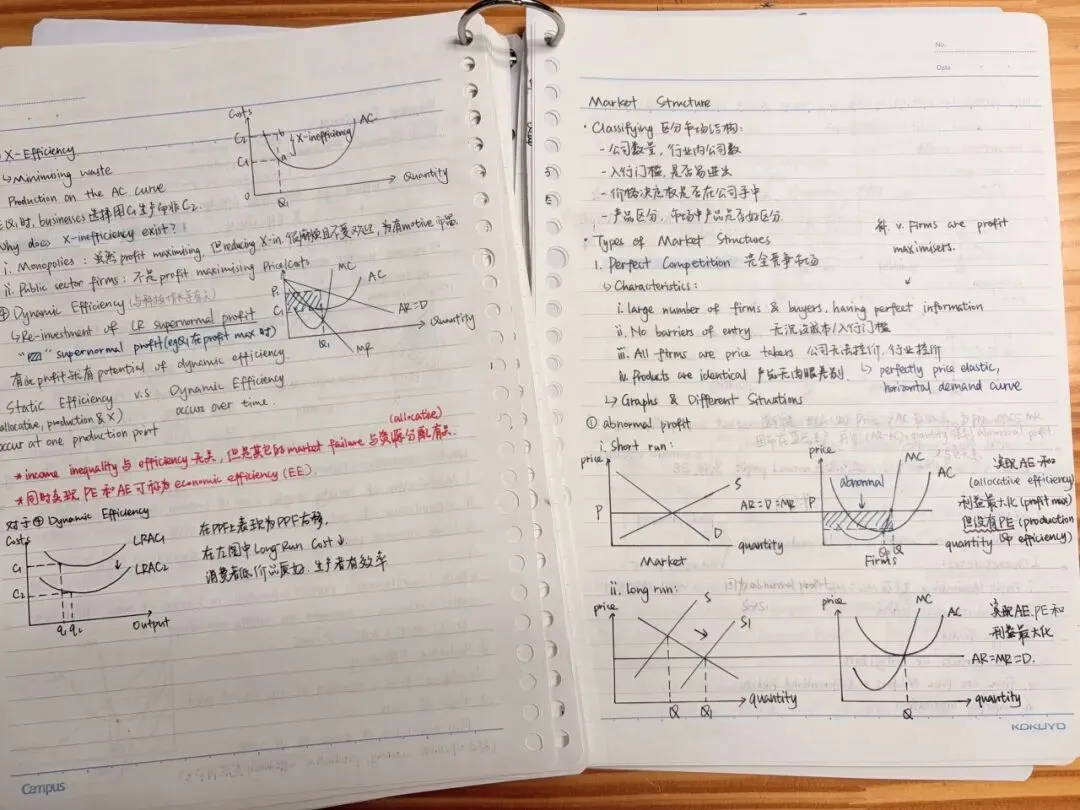 X-Efficiency
↳ Minimising waste
Production on the AC curve
Q1时, businesses选择用C1生产而非C2.
Why does X-inefficiency exist?
Costs
C2
C1
b
a
X-inefficiency
AC
Quantity
0
Q1
i. Monopolies: 虽然profit maximising, 但reducing X-in.
ii. Public sector firms: 不是profit maximising
④ Dynamic Efficiency
↳ Re-investment of LR supernormal profit
" " supernormal profit (eg Q1在profit max时)
有此profit就有potential of dynamic efficiency
Price/Costs
P1
C1
MC
AC
AR=D
Quantity
Q1
MR
Static Efficiency v.s Dynamic Efficiency
(allocative, production & X) occurs over time.
occur at one production point
(allocative)
* income inequality与efficiency无关, 但是其它的market failure与资源分配有关.
* 同时实现PE和AE可称为economic efficiency (EE).
对于④ Dynamic Efficiency
Costs
C1
C2
LRAC1
LRAC2
q1 q2
Output
在PPF上表现为PPF右移,
在左图中Long Run Cost↓
消费者低价品质好, 生产者有效率
Campus
No.
Date
Market Structure
· Classifying 区分市场结构:
- 公司数量, 行业内公司数
- 入行门槛, 是否易进出
- 价格决定权是否在公司手中
- 产品区分, 市场中产品是否好区分
· Types of Market Structures
v. Firms are profit
maximisers.
1. Perfect Competition 完全竞争市场
↳ Characteristics:
i. large number of firms & buyers, having perfect information
ii. No barriers of entry 无沉没成本/入行门槛
iii. All firms are price takers 公司无法控价, 行业控价
iv. Products are identical 产品无肉眼差别.
↳ perfectly price elastic,
horizontal demand curve
↳ Graphs & Different Situations
① abnormal profit
i. Short run:
price
P
S
D
quantity
Market
price
AR=D=MR
P
abnormal
MC
AC
Q
quantity
Firms
实现AE和
(allocative efficiency)
利益最大化 (profit max)
但没有PE (production
efficiency)
ii. Long run:
price
S
S1
Q
Q1
quantity
price
MC
AC
AR=MR=D.
Q
quantity
实现AE, PE和
利益最大化
KOKUYO